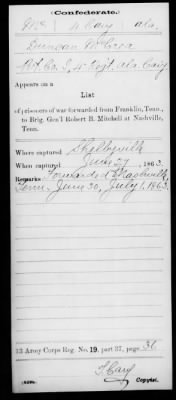 Confederate.
Mc 4 Cav Ala.
Duncan McCrea
Pvt. Co. I, 4 Regt. Ala Cav'y
Appears on a
List
of prisoners of war forwarded from Franklin, Tenn.,
to Brig. Gen'l Robert B. Mitchell at Nashville,
Tenn.
Where captured Shelbyville
When captured June 27, 1863.
Remarks Forwarded Nashville
Tenn. June 30, July 1, 1863
13 Army Corps Reg. No. 19, part 37, page 36
Copyist.